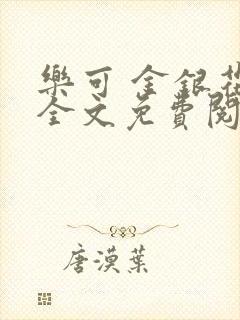 樂可 金銀花
全文免費閱
唐漠葉